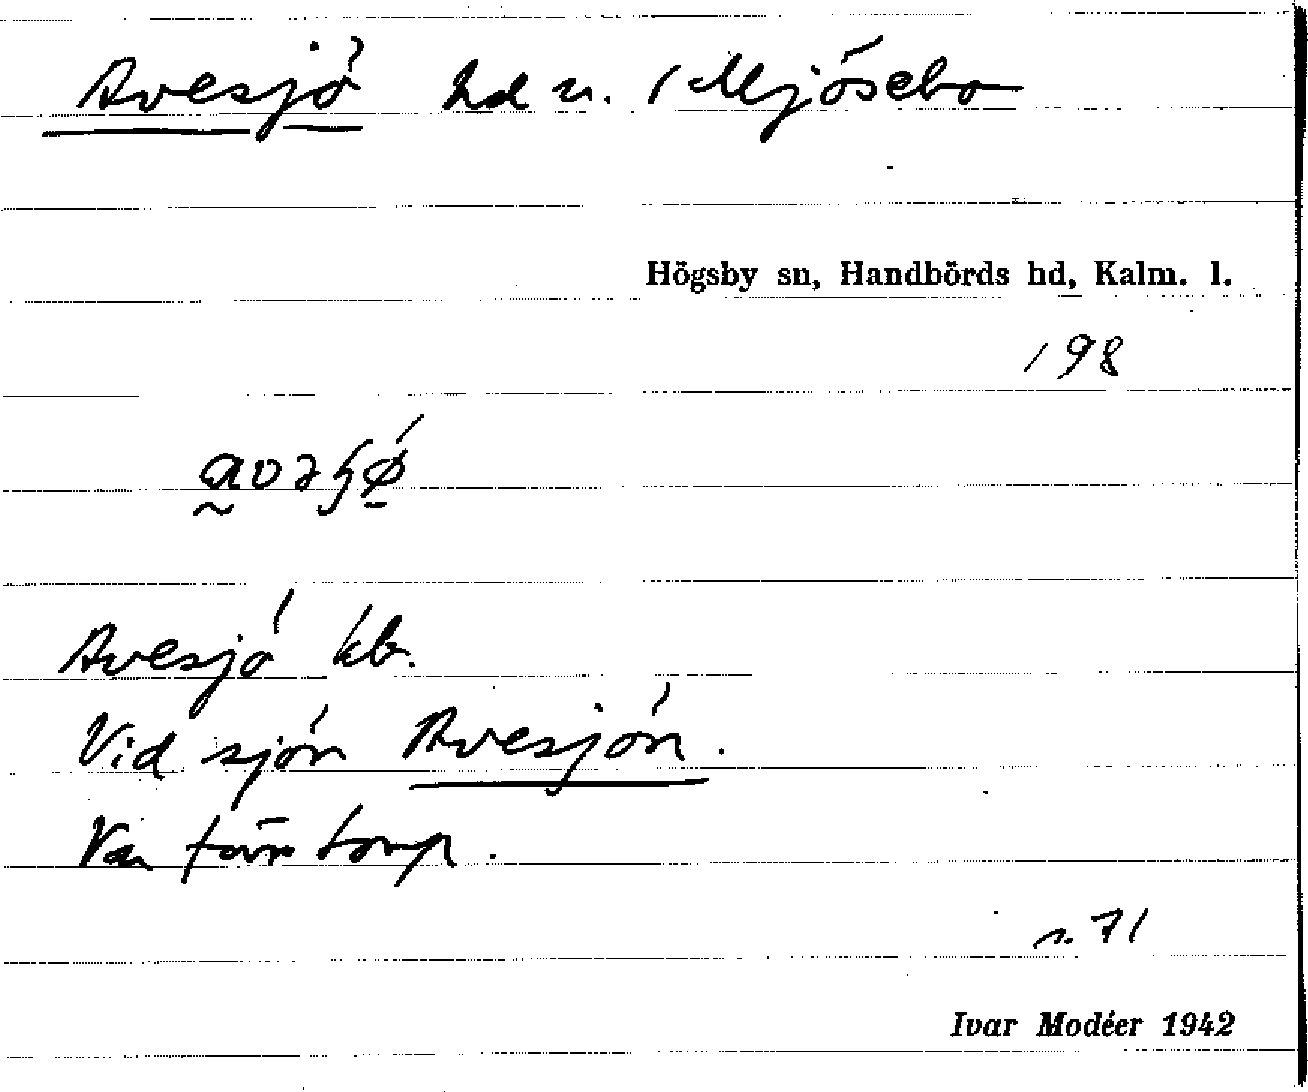 Avesjö hd u. / Mjösebo
Högsby sn, Handbörds hd, Kalm. l.
198
Avesjö kb.
Vid sjön Avesjön.
Var förr torp.
s. 71
Ivar Modéer 1942